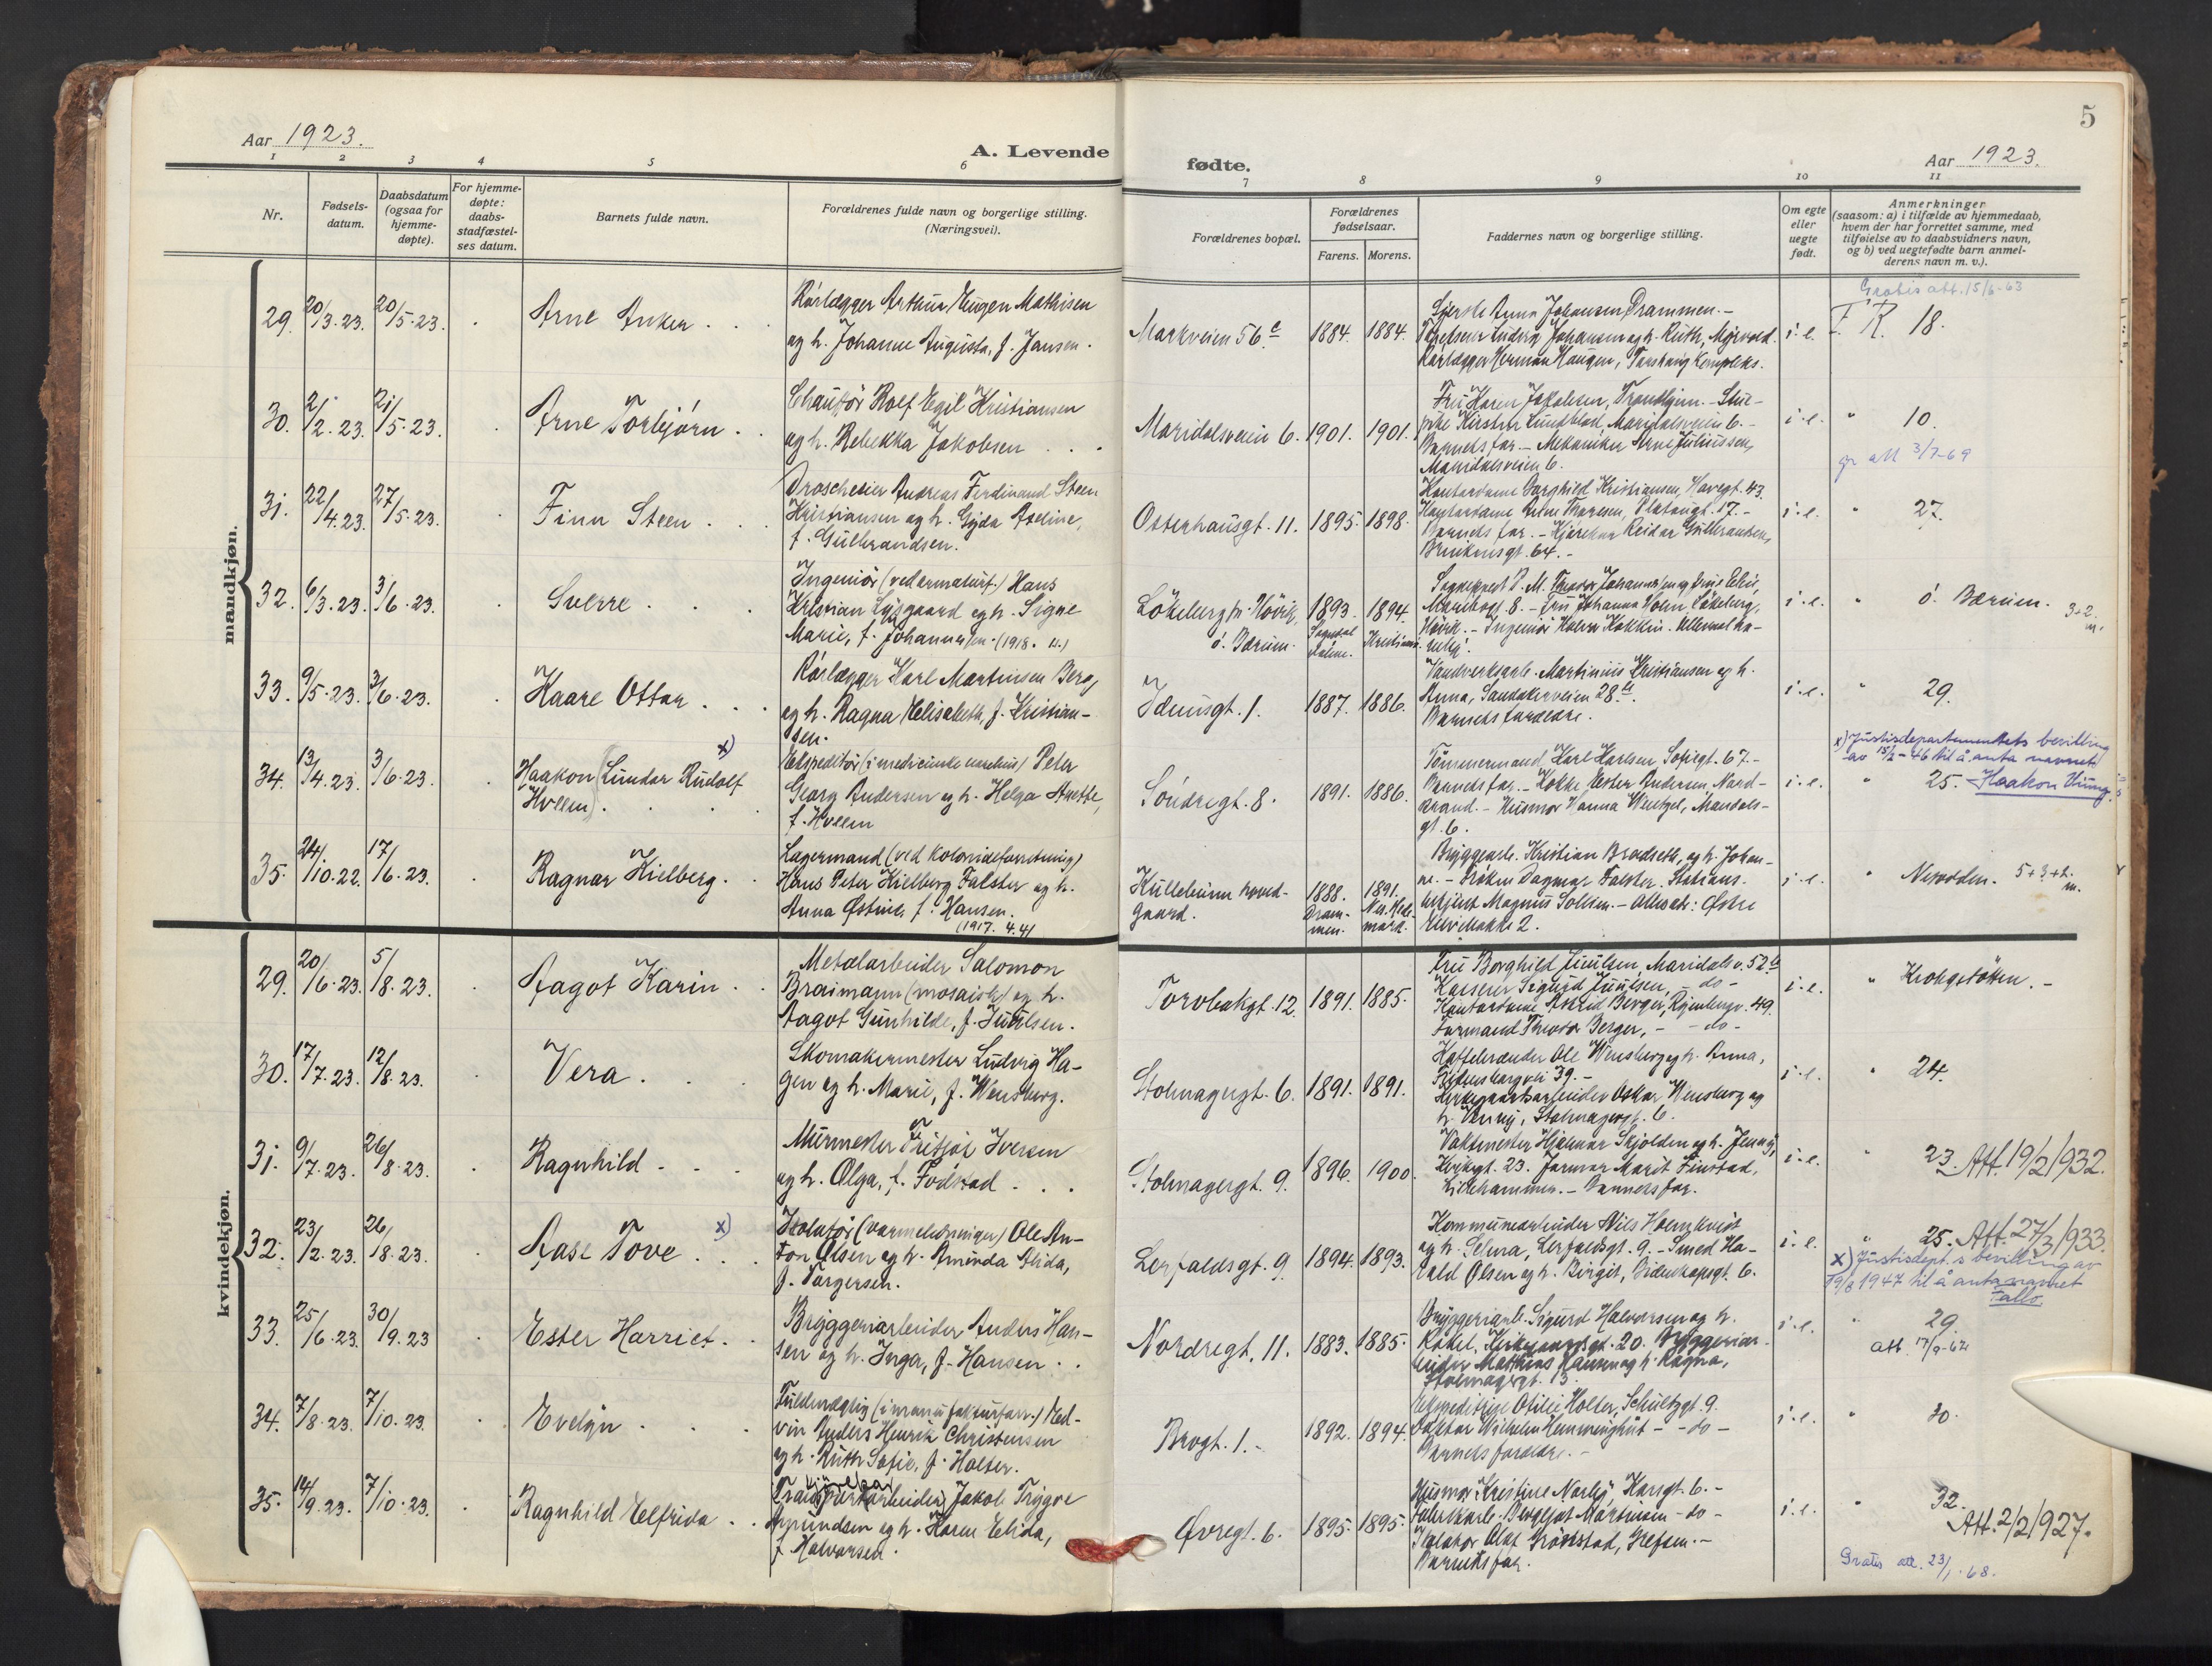 5
Aar 1923.
A. Levende
fødte.
Aar 1923.
1 2 3 4 5 6
7 8 9 10 11
Nr.
Fødsels-
datum.
Daabsdatum
(ogsaa for
hjemme-
døpte).
For hjemme-
døpte:
daabs-
stadfæstel-
ses datum.
Barnets fulde navn.
Forældrenes fulde navn og borgerlige stilling.
(Næringsvei).
Forældrenes bopæl.
Forældrenes
fødselsaar.
Farens. Morens.
Faddernes navn og borgerlige stilling.
Om egte
eller
uegte
født.
Anmerkninger
(saasom: a) i tilfælde av hjemmedaab,
hvem der har forrettet samme, med
tilføielse av to daabsvidners navn,
og b) ved uegtefødte barn anmel-
derens navn m. v.).
mandkjøn.
29. 20/3.23. 20/5.23. Arne Anker
Rørlægger Arthur Eugen Mathisen
og h. Johanne Augusta, f. Jansen.
Markveien 56 c 1884. 1884.
Anna Johansen, Drammen.-
Ludvig Johansen og h. Ruth,
Rørlægger Herman Haugen,
i.e. F. R. 18.
Gratis att. 15/6-63
30. 2/2.23. 21/5.23. Arne Torbjørn
Chaufør Rolf Egil Kristiansen
og h. Rebekka Jakobsen
Maridalsveien 6. 1901. 1901.
Fru Karen Jakobsen, Trondhjem.-
Kirsten Lundblad, Maridalsveien 6.-
Barnets far.- Mekaniker Arne Juliussen,
Maridalsveien 6.
i.e. " 10.
gr att 3/7-69
31. 22/4.23. 27/5.23. Finn Steen
Droscheeier Andreas Ferdinand Steen
Kristiansen og h. Gyda Adeline,
f. Gulbrandsen.
Osterhausgt. 11. 1895. 1898.
Kontordame Borghild Kristiansen, Havegt. 43.
Kontordame Thoresen, Platougt. 17.-
Barnets far.- Reidar Gulbrandsen,
64.-
i.e. " 27.
32. 6/3.23. 3/6.23. Sverre
Ingeniør (ved armatur.) Hans
Kristian Lysgaard og h. Signe
Marie, f. Johannesen. (1918.
Løkeberg pr. Høvik,
ó. Bærum.
1893. 1894.
Johannessen og
8. - Fru Johanna Holm, Løkeberg,
Høvik.- Ingeniør
i.e. " ó. Bærum. 3+2
m.
33. 9/5.23. 3/6.23. Kaare Ottar
Rørlægger Karl Martinsen Berg
og h. Ragna Elisabeth, f. Kristian-
sen.
Idunsgt. 1. 1887. 1886.
Martinius Kristiansen og h.
Anna, Sandakerveien 28 b.
Barnets forældre.
i.e. " 29.
34. 13/4.23. 3/6.23. Haakon (Lindar Rudolf x)
Hvllen)
Ekspeditør Peter
Georg Andersen og h. Helga Anette,
f. Hvllen
Søndregt. 8. 1891. 1886.
Tømmermand Karl Karlsen Sofiegt. 67.-
Barnets far.- Ester Andersen, Nord-
strand.- Husmor Hanna Wentzel, Mandals-
gt. 6.
i.e. " 25. Haakon
x) Justisdepartementets bevilling
av 15/2-46 til å anta navnet
35. 24/10.22. 17/6.23. Ragnar Kielberg.
Lagermand (ved kolonialforretning)
Hans Peter Kielberg Falster og h.
Anna Østine, f. Hansen.
(1917. 4.4)
hoved-
gaard.
1888.
Dram-
men.
1891.
Nes. Hede-
mark.
Bryggearb. Kristian Bradseth, og h. Johan-
ne.- Frøken Dagmar Falster.
Magnus Solbem.- Østre
2.
i.e. " Nesodden. 5+3+2.
m.
kvindekjøn.
29. 20/6.23. 5/8.23. Aagot Karin
Metalarbeider Salomon
Braimann (mosaisk) og h.
Aagot Gunhilde, f. Juulsen.
Torvbakgt. 12. 1891. 1885.
Fru Borghild Juulsen, Maridalsv. 52 b
Kasserer Sigurd Juulsen, - do -
Kontordame Astrid Berger, 49.
Formand Theodor Berger, - - do -
i.e. " Krohgstøtten.-
30. 17/7.23. 12/8.23. Vera
Skomakermester Ludvig Ha-
gen og h. Marie, f. Wensberg.
Stolmagergt. 6. 1891. 1891.
Ole Wensberg og h. Anna,
39.-
Oskar Wensberg og
h. Stolmagergt. 6.
i.e. " 24.
31. 9/7.23. 26/8.23. Ragnhild
Murmester Fritjof Iversen
og h. Olga, f. Fodstad
Stolmagergt. 9. 1896. 1900.
Vaktmester Hjalmar Skjolden og h. Jenny,
23. Jormor Marit Finstad,
Lillehammer.- Barnets far.
i.e. " 23. Att. 19/2 1932.
32. 23/2.23. 26/8.23. Aase Tove x)
Isolatør (varmeledninger) Ole An-
ton Olsen og h. Aminda Alida,
f. Torgersen.
Lerfaldsgt. 9 1894. 1893.
Kommunearbeider Nils Holmkvist
og h. Selma, Lerfaldsgt. 9.- Smed Ha-
rald Olsen og h. Birgit, Videnskapsgt. 6.
i.e. " 25. Att. 27/3 1933.
x) Justisdept.s bevilling av
19/8 1947 til å anta navnet
Fallo.
33. 25/6.23. 30/9.23 Ester Harriet.
Bryggeriarbeider Anders Han-
sen og h. Inga, f. Hansen.
Nordregt. 11. 1883. 1885.
Bryggeriarb. Sigurd Halvorsen og h.
Rakel, 20. Bryggeriar-
beider Mathias Hansen og h. Ragna,
Stolmagergt. 13.
i.e. " 29
att. 17/9-62
34. 7/8.23. 7/10.23. Evelyn
Fuldmægtig (i manufakturforr.) Ed-
vin Anders Henrik Christensen
og h. Ruth Sofie, f. Holter.
Brogt. 1.- 1892. 1894.
Otilie Holter, Schultzgt. 9.
Faktor Wilhelm Hemminghüt - - do -
Barnets forældre.-
i.e. " 30.
35. 14/9.23. 7/10.23. Ragnhild Elfrida
Jakob Trygve
Amundsen og h. Karen Elida,
f. Halvorsen.
Øvregt. 6. 1895. 1895.
Husmor Kristine Norby, Korsgt. 6.-
Bergljot Martinsen - do -
Isolatør Olaf Grøtstad, Grefsen.-
Barnets far.
i.e. " 32.
Att. 2/2 1927.
Gratis att. 23/1.68.